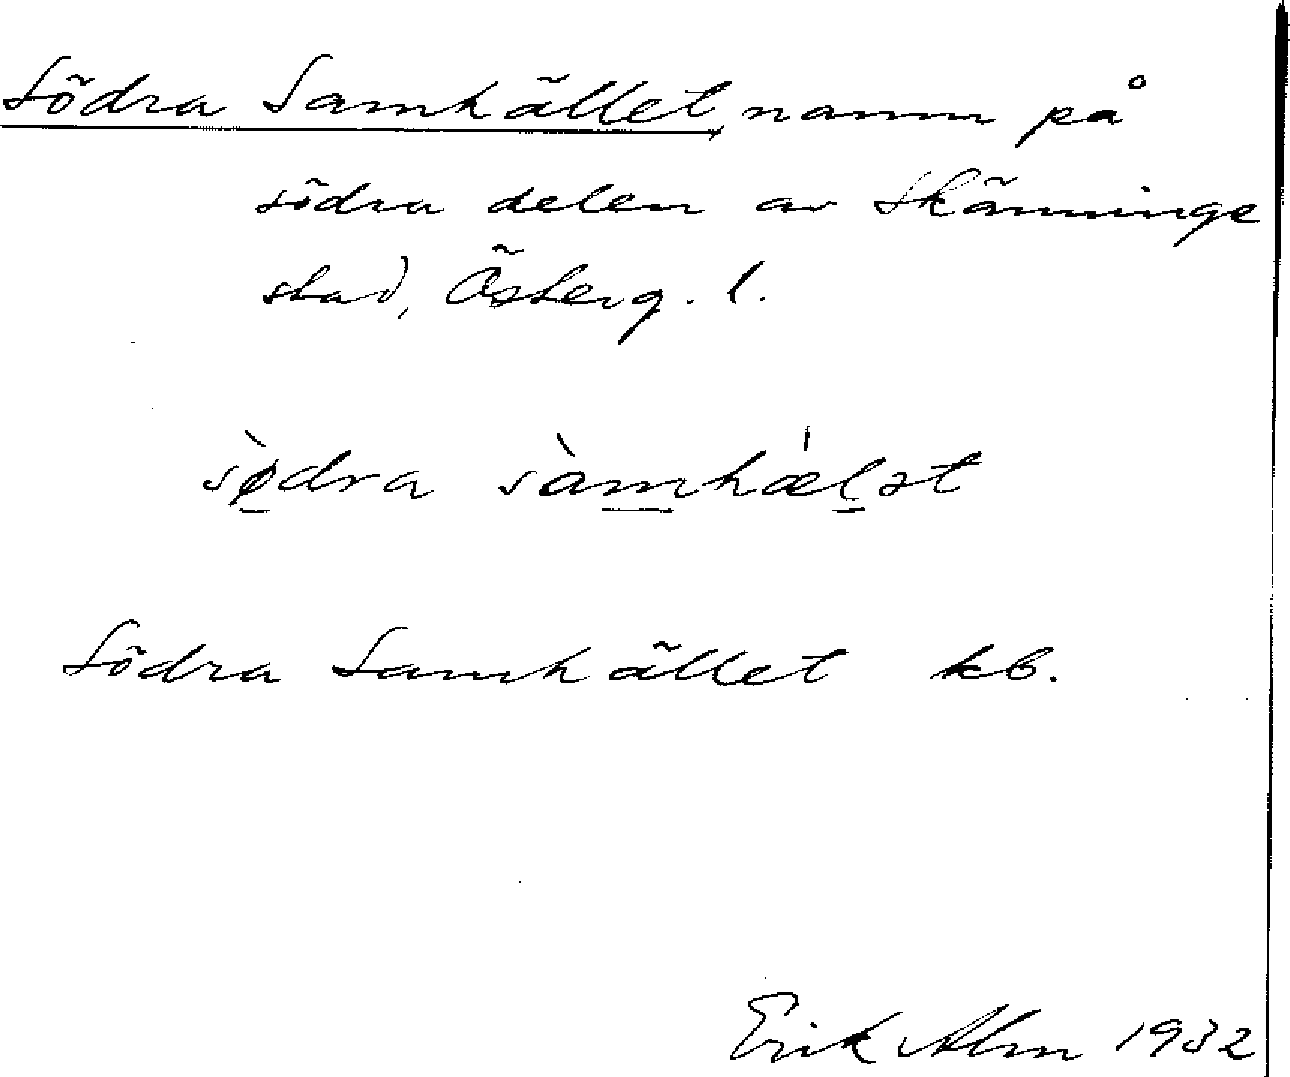 Södra Samhället, namn på
södra delen av Skänninge
stad, Österg. l.
sø̀dra sàmhæ̍lət
Södra Samhället kb.
Erik Alm 1932